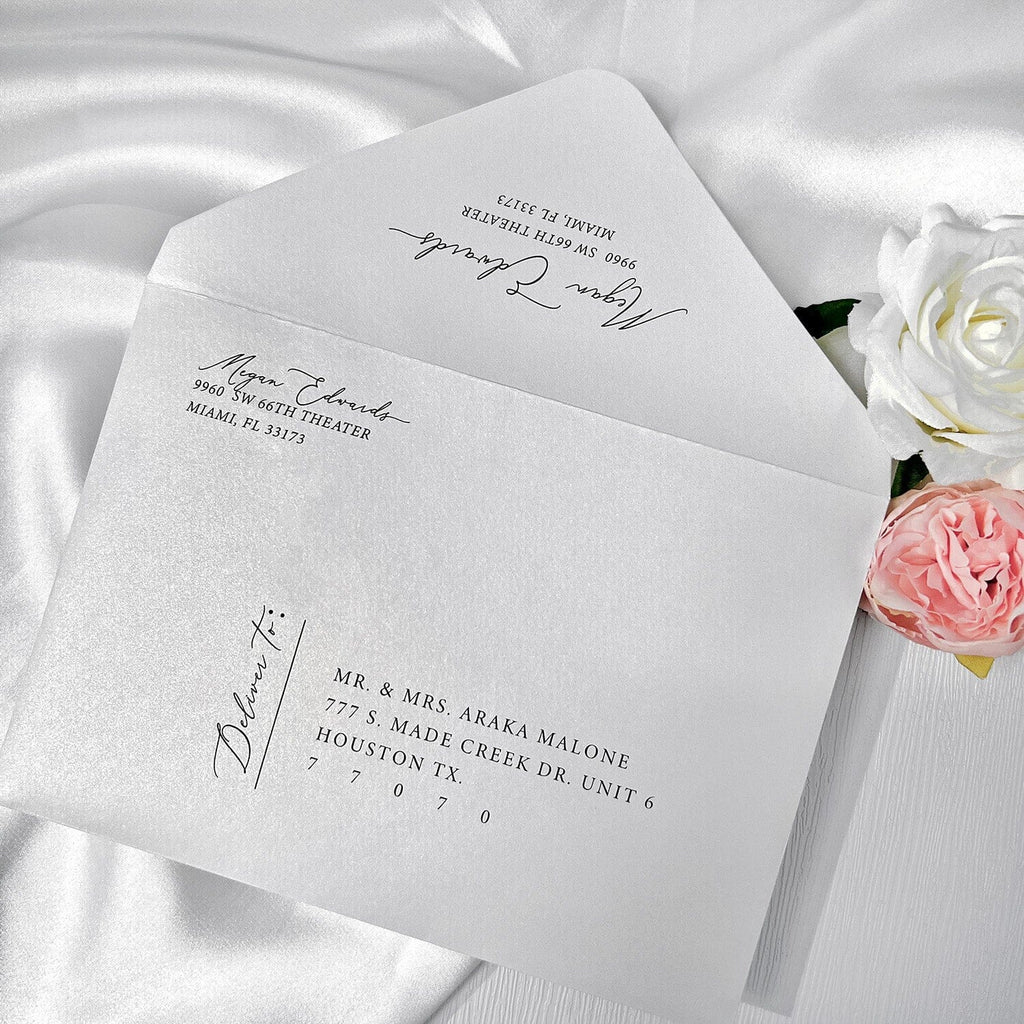 Megan Edwards
9960 SW 66TH THEATER
MIAMI, FL 33173
Megan Edwards
9960 SW 66TH THEATER
MIAMI, FL 33173
Deliver to:
MR. & MRS. ARAKA MALONE
777 S. MADE CREEK DR. UNIT 6
HOUSTON TX.
7 7 0 7 0